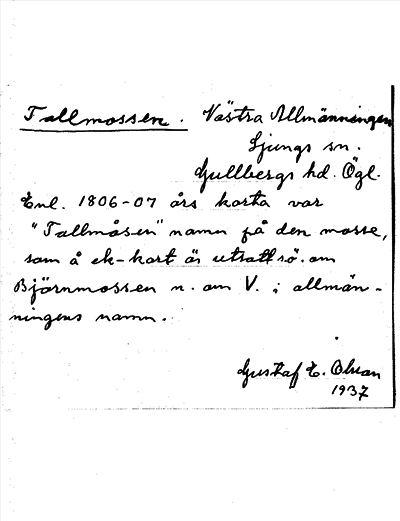 Tallmossen. Västra Allmänningen
Ljungs sn.
Gullbergs hd. Ögl.
Enl. 1806-07 års karta var
"Tallmåsen" namn på den mosse,
som å ek-kart är utsatt sö. om
Björnmossen n. om V. i allmän-
ningens namn.
Gustaf E. Olsson
1937